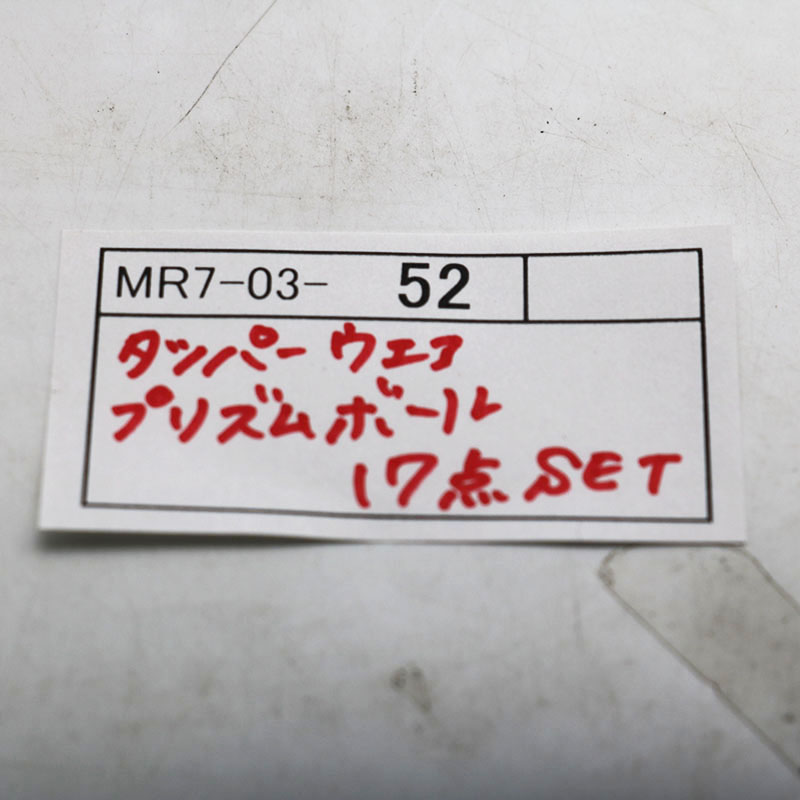 MR7-03- 52
タッパーウエア
プリズムボール
17点 SET